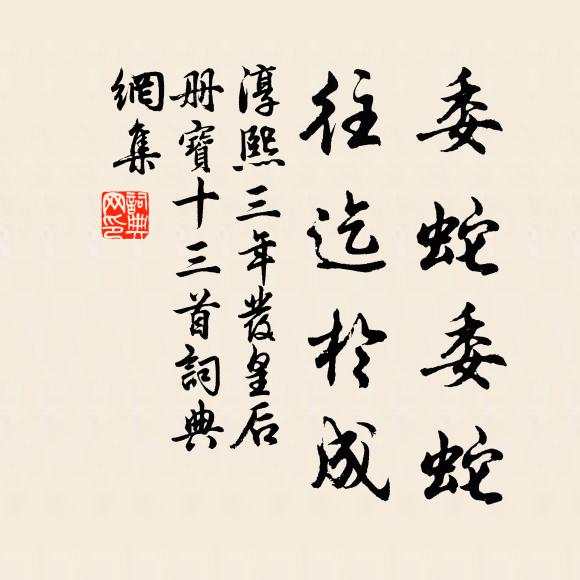 委蛇委蛇
往迄於成
淳熙三年發皇后
册寶十三首詞典
網集
詞典
网印